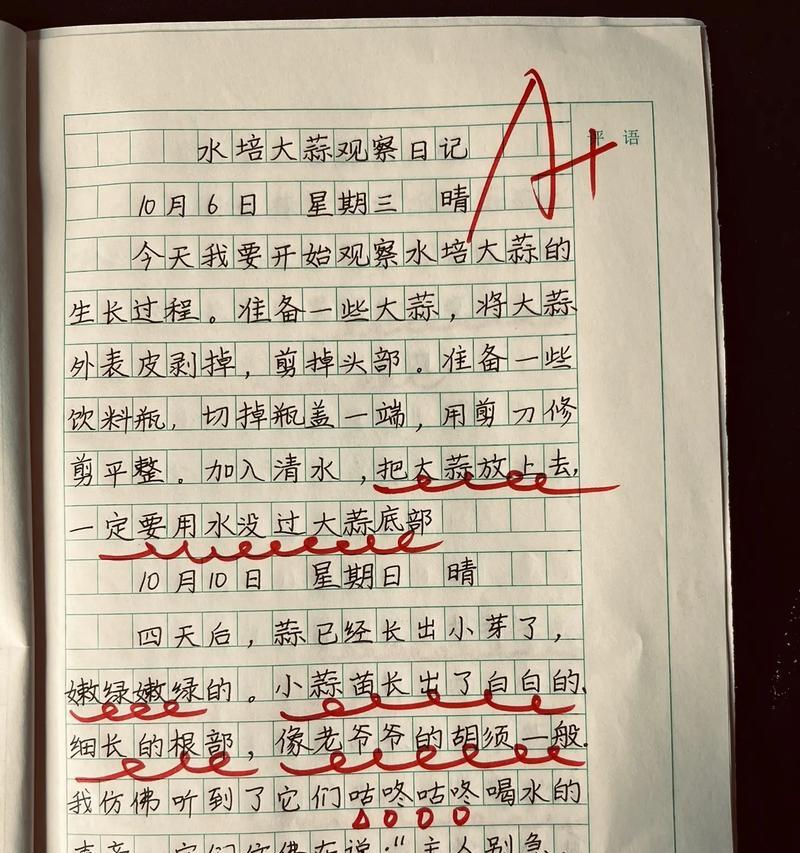 水培大蒜观察日记
评语
10月6日 星期三 晴
A+
今天我要开始观察水培大蒜的
生长过程。准备一些大蒜，将大蒜
外表皮剥掉，剪掉头部。准备一些
饮料瓶，切掉瓶盖一端，用剪刀修
剪平整。加入清水，把大蒜放上去，
一定要用水没过大蒜底部
10月10日 星期日 晴
四天后，蒜已经长出小芽了，
嫩绿嫩绿的。小蒜苗长出了白白的、
细长的根部，像老爷爷的胡须一般.
我仿佛听到了它们咕咚咕咚喝水的
声音，它们仿佛在说："主人别急，